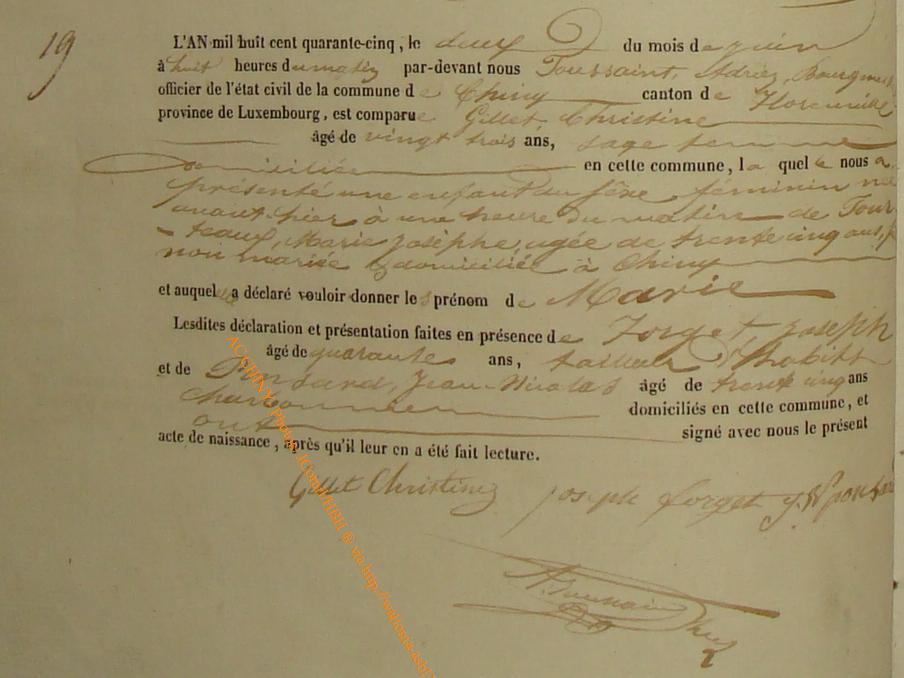 19
L'AN mil huit cent quarante-cinq, le deux du mois de juin
à huit heures du matin par-devant nous Toussaint, Adrien, Bourgmest
officier de l'état civil de la commune de Chiny canton de Florenville
province de Luxembourg, est comparue Gillet Christine
âgé de vingt trois ans, sage femme
domiciliée en cette commune, laquelle nous a
présenté une enfant du séxe féminin né
avant hier à une heure du matin de Tour
teaux, Marie Josèphe, agée de trente cinq ans,
non mariée & domiciliée à Chiny
et auquel a déclaré vouloir donner les prénom de Marie
Lesdites déclaration et présentation faites en présence de Forget, Joseph
âgé de quarante ans, tailleur d'habits
et de Ponsard, Jean-Nicolas âgé de trente cinq ans
charbonnier domiciliés en cette commune, et
ont signé avec nous le présent
acte de naissance, après qu'il leur en a été fait lecture.
Gillet Christine Joseph forget J. N ponsar
A. Toussaint